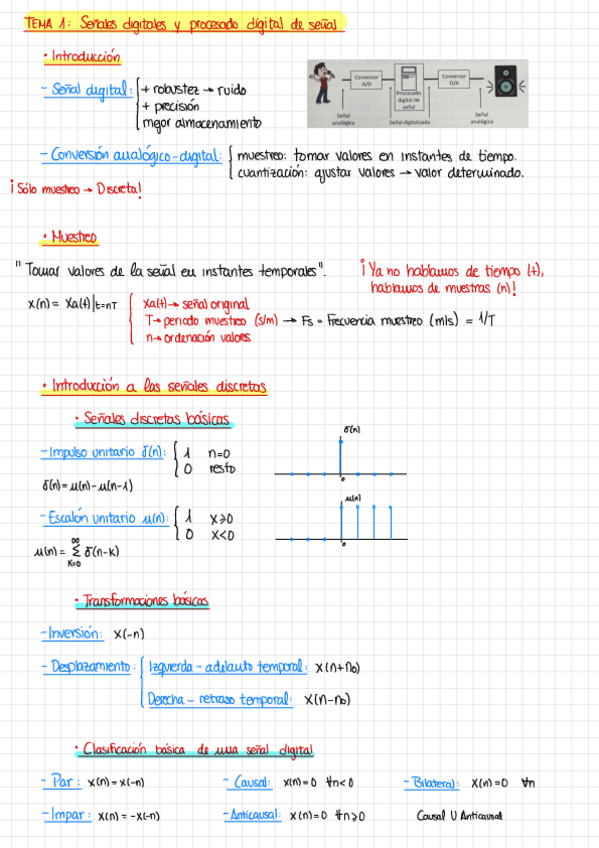 TEMA 1: Señales digitales y procesado digital de señal
· Introducción
- Señal digital: + robustez → ruido
+ precisión
mejor almacenamiento
Conversor A/D
Procesado digital de señal
Conversor D/A
Señal analógica
Señal digitalizada
Señal analógica
- Conversión analógico-digital: muestreo: tomar valores en instantes de tiempo.
cuantización: ajustar valores → valor determinado.
¡Sólo muestreo → Discreta!
· Muestreo
"Tomar valores de la señal en instantes temporales".
¡Ya no hablamos de tiempo (t),
hablamos de muestras (n)!
x(n) = Xa(t)|t=nT
Xa(t) → señal original
T → periodo muestreo (s/m) → Fs = Frecuencia muestreo (m/s) = 1/T
n → ordenación valores
· Introducción a las señales discretas
· Señales discretas básicas
- Impulso unitario δ(n): 1 n=0
0 resto
δ(n) = u(n) - u(n-1)
δ(n)
0
- Escalón unitario u(n): 1 x≥0
0 x<0
u(n) = ∞ Σ K=0 δ(n-k)
u(n)
0
· Transformaciones básicas
- Inversión: x(-n)
- Desplazamiento: Izquierda - adelanto temporal: x(n+n₀)
Derecha - retraso temporal: x(n-n₀)
· Clasificación básica de una señal digital
- Par: x(n) = x(-n)
- Causal: x(n) = 0 ∀n<0
- Bilateral: x(n) = 0 ∀n
- Impar: x(n) = -x(-n)
- Anticausal: x(n) = 0 ∀n≥0
Causal U Anticausal